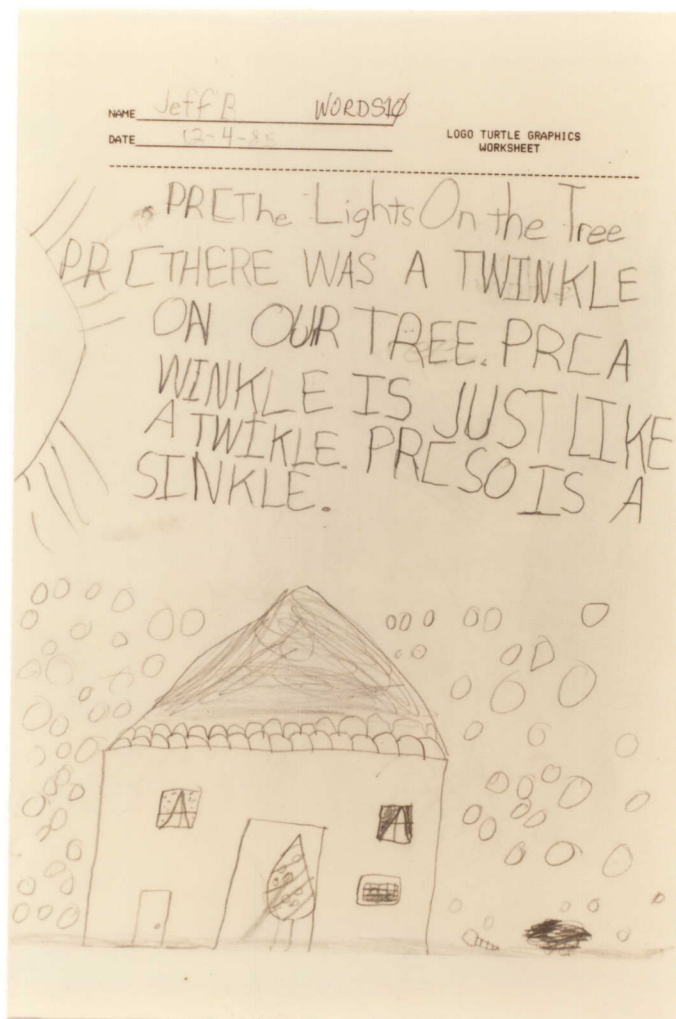 NAME Jeff B WORDS10
DATE 12-4-85
LOGO TURTLE GRAPHICS
WORKSHEET
PR[The Lights On the Tree
PR [THERE WAS A TWINKLE
ON OUR TREE. PR[A
WINKLE IS JUST LIKE
A TWIKLE. PR[SO IS A
SINKLE.